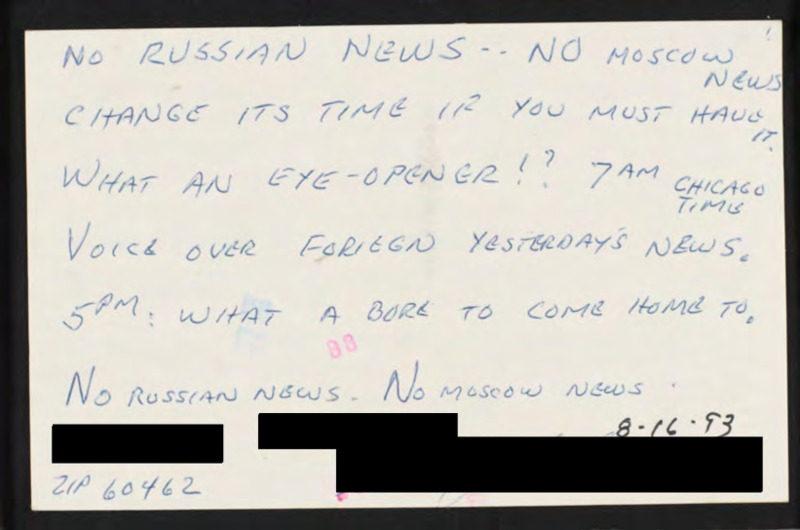 NO RUSSIAN NEWS-- NO MOSCOW NEWS
CHANGE ITS TIME IF YOU MUST HAVE IT.
WHAT AN EYE-OPENER!? 7AM CHICAGO TIME
VOICE OVER FORIEGN YESTERDAY'S NEWS.
5PM: WHAT A BORE TO COME HOME TO.
88
NO RUSSIAN NEWS. NO MOSCOW NEWS.
8-16-93
ZIP 60462